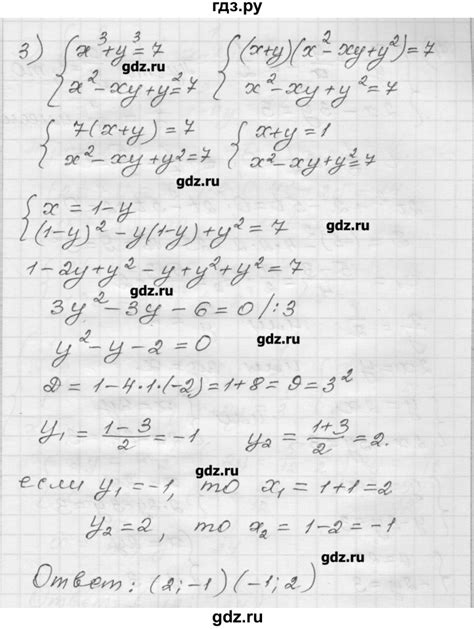 гдз.ру
3) { x³+y³=7 { (x+y)(x²-xy+y²)=7
x²-xy+y²=7 x²-xy+y²=7
gdz.ru
{ 7(x+y)=7 { x+y=1
x²-xy+y²=7 x²-xy+y²=7
gdz.ru
{ x=1-y
(1-y)²-y(1-y)+y²=7
gdz.ru
1-2y+y²-y+y²+y²=7
gdz.ru
3y²-3y-6=0/:3
y²-y-2=0
gdz.ru
D=1-4·1·(-2)=1+8=9=3²
gdz.ru
y₁=(1-3)/2=-1 y₂=(1+3)/2=2.
gdz.ru
если y₁=-1, то x₁=1+1=2
y₂=2, то x₂=1-2=-1
gdz.ru
Ответ: (2;-1)(-1;2)
gdz.ru
gdz.ru